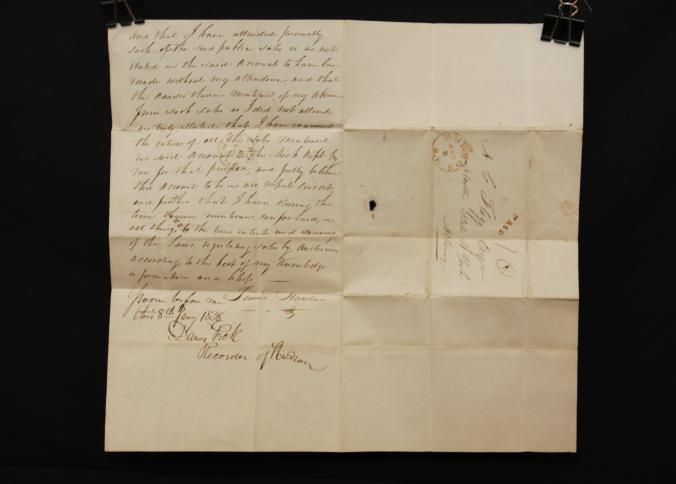 and that I have attended personally
each of the said public sales as are not
stated in the said account to have been
made without my attendance and that
the causes therein mentioned of my absence
from such sales as I did not attend
are truly stated, that I have examined
the entries of all the sales mentioned
in said account in the Book kept by
me for that purpose, and fully believe
this account to be in all respects correct
and further that I have during the
time therein mentioned conformed in
all things to the true intent and meaning
of the Laws regulating sales by Auctioneers
according to the best of my Knowledge
information and belief
Sworn before me
this 8th Jany 1838
Recorder of Hudson
PAID
A C Flagg Esqr
Albany